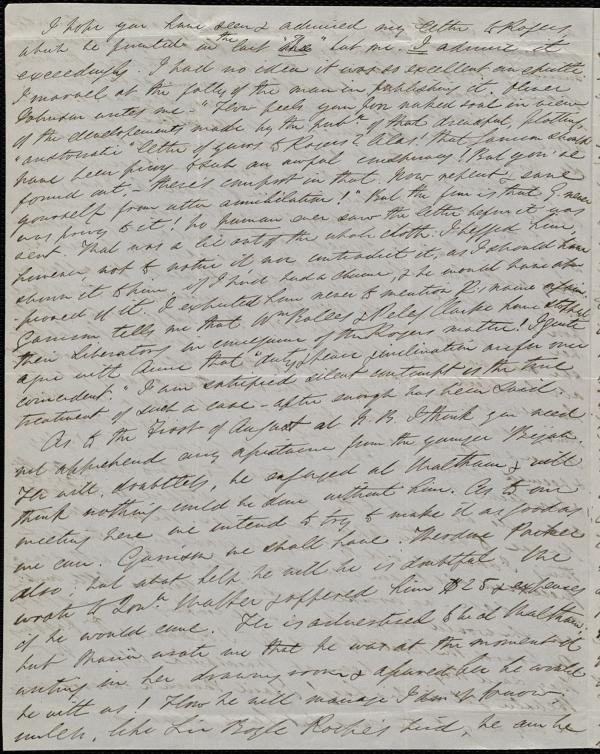 I hope you have seen & admired my letter to Rogers,
which he printed in the last "The" but me. I admire it
exceedingly. I had no idea it was so excellent an epistle
I marvel at the folly of the man in publishing it. Oliver
Johnson writes me - "How feels your poor naked soul in view
of the developements made by the pub'n of that dreadful, plotting,
"autocratic" letter of yours to Rogers? Alas! that Garrison should
have been privy to such an awful conspiracy! But you're
found out, - there's comfort in that. Now repent & save
yourself from utter annihilation!" But the fun is that G. never
was privy to it! No human ever saw the letter before it was
sent. That was a lie out of the whole cloth. I begged him,
however not to notice it nor contradict it, as I should have
shown it to him, if I had had a chance, & he would have ap-
proved of it. I exhorted him never to mention R's name again.
Garrison tells me that Wm & Clarke have stopped
their Liberators in consequence of the Rogers matter! I quite
agree with Anne that "duty, peace & inclination are for once
coincident." I am satisfied silent contempt is the true
treatment of such a case - after enough has been said.
As to the First of August at N. B. I think you need
not apprehend any from the younger
He will, doubtless, be engaged at Waltham & will
think nothing could be done without him. As to our
meeting here we intend to try to make it as good as
we can. Garrison we shall have. Theodore Parker
also; but what help he will be is doubtful. We
wrote to Jon'n Walker & offered him $25 & expenses
if he would come. He is advertised to be at Waltham.
but Maria wrote me that he was at the moment of
writing in her drawing room & appeared he would
be with us! How he will manage I don't know.
unless, like Sir Boyle Roche's bird, he can be